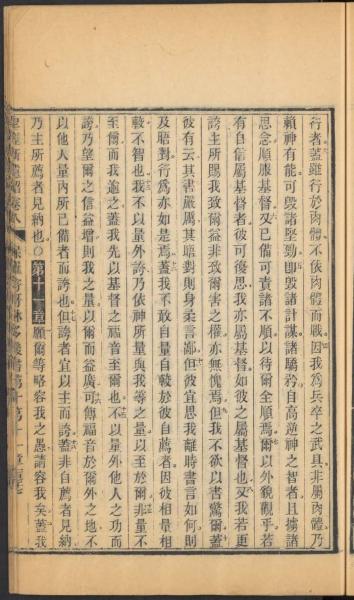 行者蓋雖行於肉體不依肉體而戰因我為兵卒之武具非屬肉體乃
賴神有能可毀諸堅勁即毀諸計謀諸驕矜自高逆神之智者且擄諸
思念順服基督又已備可責諸不順以待爾全順焉爾以外貌觀乎若
有自信屬基督者彼可復思我亦屬基督如彼之屬基督也又我若更
誇主所賜我致爾益非致爾害之權亦無愧焉但我不欲以書驚爾蓋
彼有云其書嚴厲其晤對則身柔言鄙但彼宜思我離時書言如何則
及晤對行為亦如是焉蓋我不敢自量自較於彼自薦者因彼相量相
較不智也我不以量外誇乃依神所量與我等之量以至於爾非量不
至爾而我逾之蓋我先以基督之福音至爾也不以量外他人之功而
誇乃望爾之信益增則我之量以爾而益廣可傳福音於爾外之地不
以他人量內所已備者而誇也但誇者宜以主而誇蓋非自薦者見納
乃主所薦者見納也○第十一章願爾等略容我之愚請容我矣蓋我